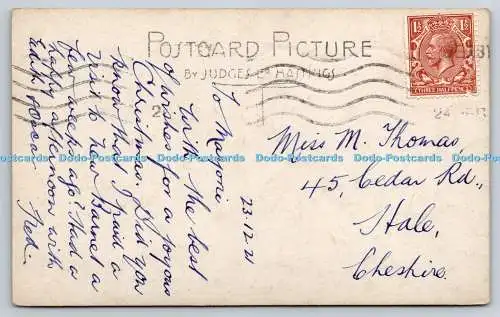 POSTCARD PICTURE
BY JUDGES Ld HASTINGS
1½ 1½
THREE HALFPENCE
To Marjori
23-12-21
with the best
of wishes for a joyous
Christmas. Did you
know that I paid a
visit to New Barnet a
few weeks ago? Had a
happy afternoon with
Edith
Fred.
Miss M. Thomas,
45, Cedar Rd.,
Hale,
Cheshire.
Dodo-Postcards Dodo-Postcards Dodo-Postcards Dodo-Postcards Dodo-Postcards Dodo-Postcards